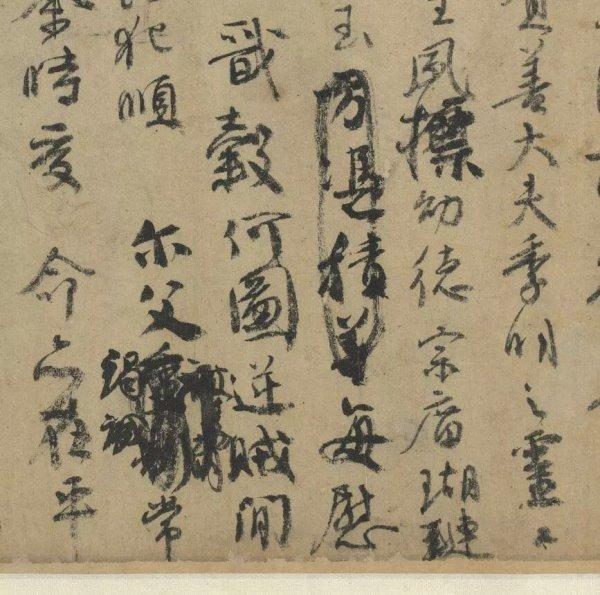 善大夫季明之靈曰
夙標幼德宗廟瑚璉
玉方憑積善每慰
戩穀何圖逆賊間
犯順尔父竭誠常
余時受命亦在平